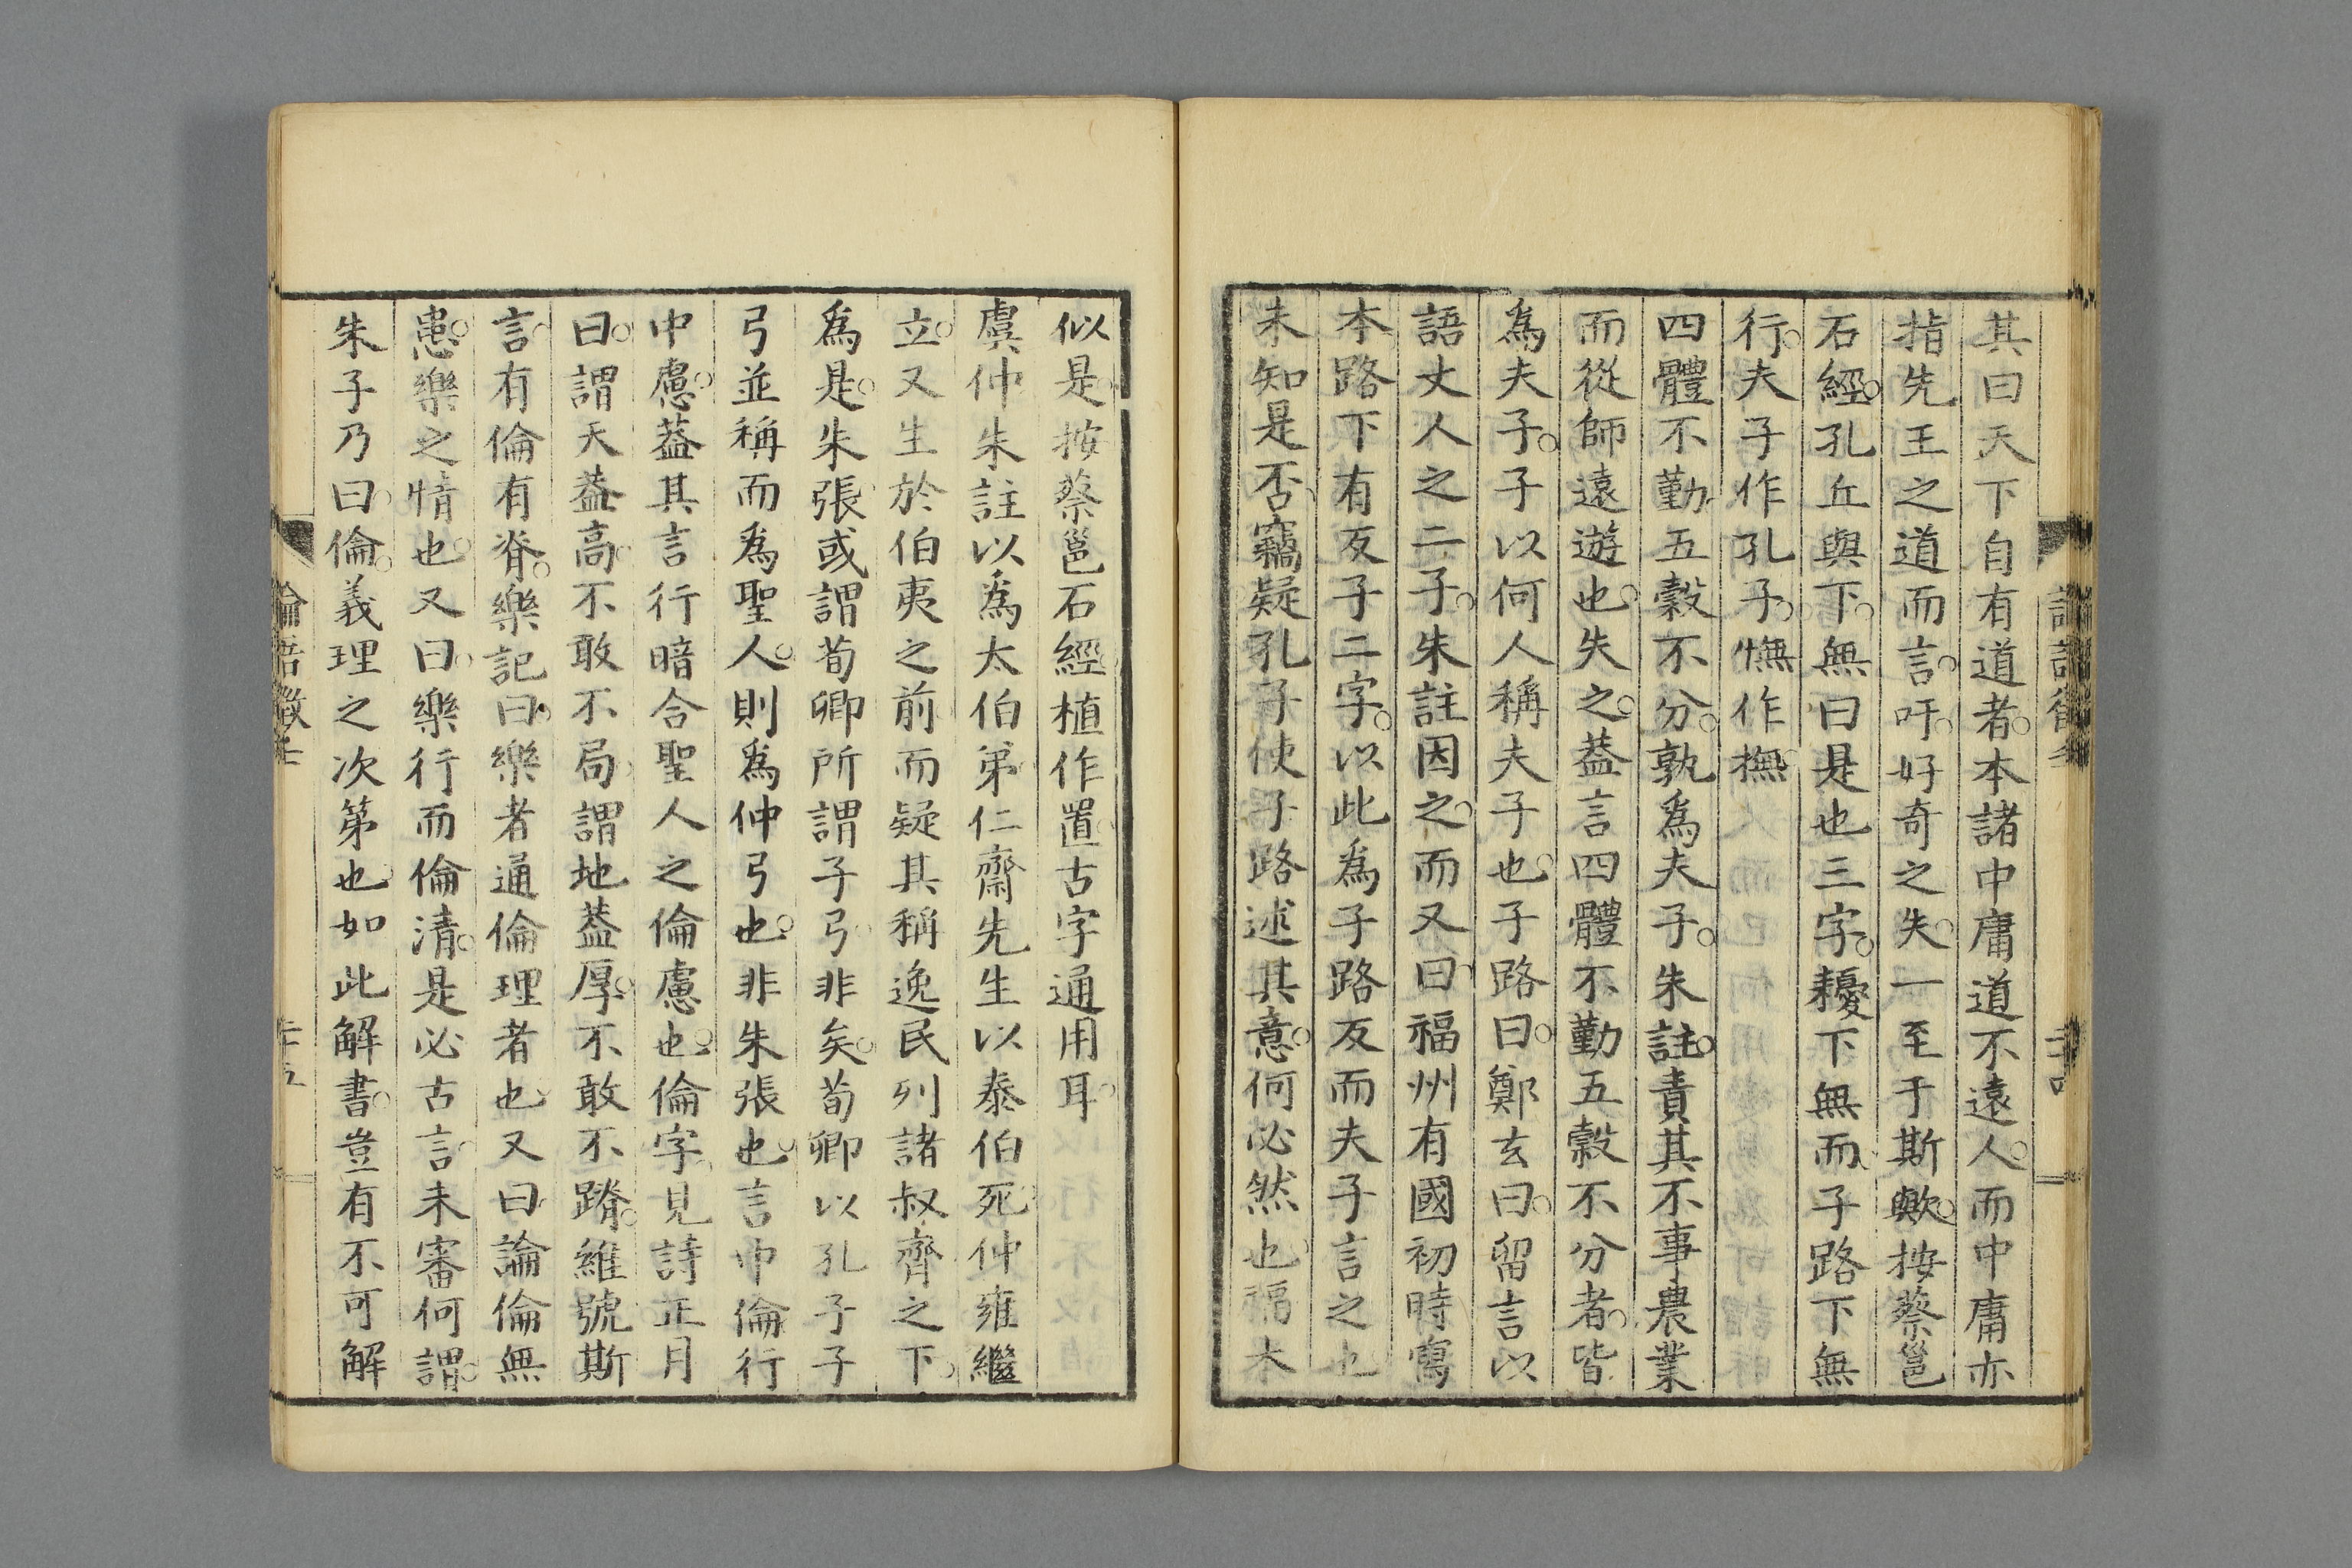 其曰天下自有道者。本諸中庸道不遠人。而中庸亦
指先王之道而言。吁。好奇之失。一至于斯歟。按蔡邕
石經。孔丘與下。無曰是也三字。耰下無而。子路下無
行。夫子作孔子。憮作撫
四體不勤。五穀不分。孰爲夫子。朱註。責其不事農業
而從師遠遊也。失之。蓋言四體不勤五穀不分者。皆
爲夫子。子以何人稱夫子也。子路曰。鄭玄曰。留言以
語丈人之二子。朱註因之。而又曰。福州有國初時寫
本路下有反子二字。以此爲子路反而夫子言之也
未知是否。竊疑孔子使子路述其意。何必然也。福本
似是。按蔡邕石經。植作置。古字通用耳。
虞仲朱註以爲太伯弟。仁齋先生以泰伯死。仲雍繼
立。又生於伯夷之前。而疑其稱逸民列諸叔齊之下。
爲是。朱張。或謂荀卿所謂子弓。非矣。荀卿以孔子子
弓並稱而爲聖人。則爲仲弓也。非朱張也。言中倫。行
中慮。蓋其言行暗合聖人之倫慮也。倫字。見詩正月
曰。謂天蓋高。不敢不局。謂地蓋厚。不敢不蹐。維號斯
言。有倫有脊。樂記曰。樂者通倫理者也。又曰。論倫無
患。樂之情也。又曰。樂行而倫清。是必古言。未審何謂。
朱子乃曰。倫。義理之次第也。如此解書。豈有不可解
論語徵壬
二十五
二十四